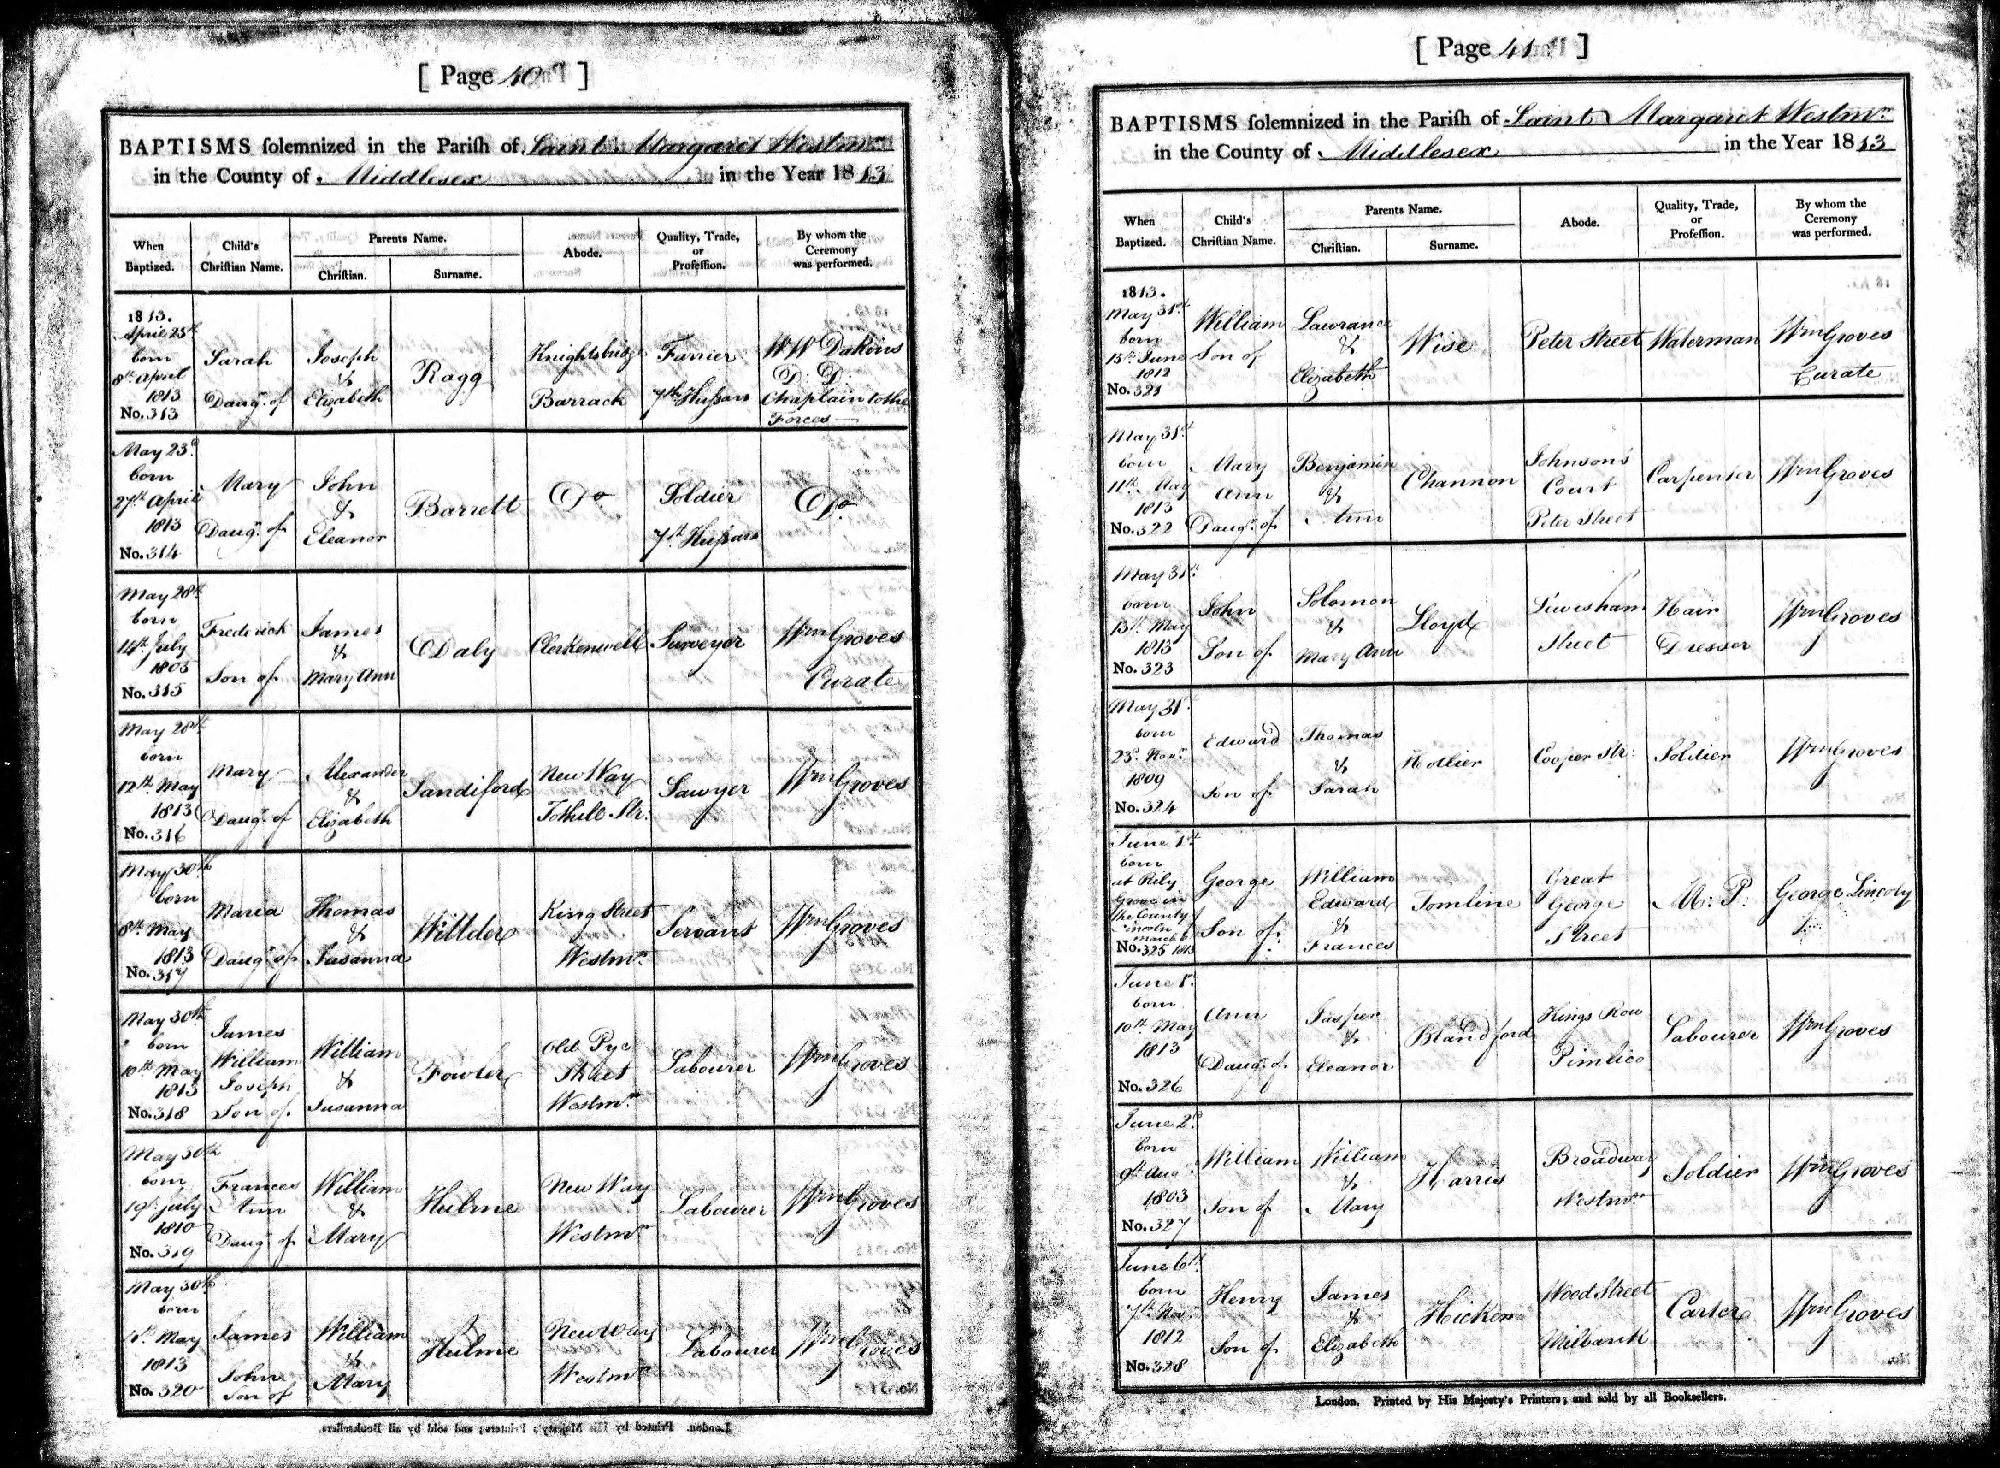 [ Page 40 ]
BAPTISMS solemnized in the Parish of Saint Margaret Westmr
in the County of Middlesex in the Year 1813
When Baptized.
Child's Christian Name.
Parents Name.
Christian.
Surname.
Abode.
Quality, Trade, or Profession.
By whom the Ceremony was performed.
1813.
April 25th
born
8th April
1813
No. 313
Sarah
Daugr. of
Joseph
&
Elizabeth
Ragg
Knightsbridge
Barrack
Farrier
7th Hussars
WW Dakins
D. D.
Chaplain to the
Forces
May 23d
born
27th April
1813
No. 314
Mary
Daugr. of
John
&
Eleanor
Barrett
Do
Soldier
7th Hussars
Do
May 28th
born
14th July
1805
No. 315
Frederick
Son of
James
&
Mary Ann
Daly
Clerkenwell
Surveyor
Wm Groves
Curate
May 28th
born
12th May
1813
No. 316
Mary
Daugr. of
Alexander
&
Elizabeth
Sandiford
New Way
Tothill Str:
Sawyer
Wm Groves
May 30th
born
8th May
1813
No. 317
Maria
Daugr. of
Thomas
&
Susanna
Willder
King Street
Westmr.
Servant
Wm Groves
May 30th
born
10th May
1813
No. 318
James
William
Joseph
Son of
William
&
Susanna
Fowler
Old Pye
Street
Westmr.
Labourer
Wm Groves
May 30th
born
19th July
1810
No. 319
Frances
Ann
Daugr. of
William
&
Mary
Hulme
New Way
Westmr.
Labourer
Wm Groves
May 30th
born
1st. May
1813
No. 320
James
John
Son of
William
&
Mary
Hulme
New Way
Westmr.
Labourer
Wm Groves
[ Page 41 ]
BAPTISMS solemnized in the Parish of Saint Margaret Westmr.
in the County of Middlesex in the Year 1813
When Baptized.
Child's Christian Name.
Parents Name.
Christian.
Surname.
Abode.
Quality, Trade, or Profession.
By whom the Ceremony was performed.
1813.
May 31st
born
15th June
1812
No. 321
William
Son of
Lawrance
&
Elizabeth
Wise
Peter Street
Waterman
Wm Groves
Curate
May 31st
born
11th May
1813
No. 322
Mary
Ann
Daugr. of
Benjamin
&
Ann
Channon
Johnson's
Court
Peter Street
Carpenter
Wm Groves
May 31st
born
13th May
1813
No. 323
John
Son of
Solomon
&
Mary Ann
Lloyd
Lewisham
Street
Hair
Dresser
Wm Groves
May 31st
born
23d. Novr.
1809
No. 324
Edward
Son of
Thomas
&
Sarah
Hollier
Cooper Str:
Soldier
Wm Groves
June 1st
born
at Rily
Grove in
the County
Lincoln
March 6
No. 325 1813
George
Son of
William
Edward
&
Frances
Tomline
Great
George
Street
M: P:
George Lincoln
June 1st
born
10th May
1813
No. 326
Ann
Daugr. of
Jasper
&
Eleanor
Blandford
Kings Row
Pimlico
Labourer
Wm Groves
June 2d
born
9th Augt
1803
No. 327
William
Son of
William
&
Mary
Harris
Broadway
Westmr
Soldier
Wm Groves
June 6th
born
7th Novr.
1812
No. 328
Henry
Son of
James
&
Elizabeth
Hickon
Wood Street
Milbank
Carter
Wm Groves
London. Printed by His Majesty's Printers; and sold by all Booksellers.